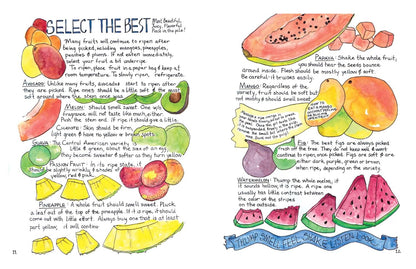 SELECT THE BEST
(Most Beautiful,
Flavorful
Fruit in the pile!)
Many fruits will continue to ripen after
being picked, including mangoes, pineapples,
peaches & plums. If not eaten immediately,
select your fruit a bit underripe.
To ripen, place fruit in a paper bag & keep at
room temperature. To slowly ripen, refrigerate.
AVOCADO: Unlike many fruits, avocados start to ripen after
they are picked. Ripe ones should be a little soft & the most
soft around where the stem once was.
MELON: should smell sweet. One w/o
fragrance will not taste like much, either.
Push the stem end. If ripe it should give a little.
COCONUTS: Skin should be firm,
light green & have no yellow or brown spots.
GUAVA: The Central American variety,
little & green, about the size of an egg
they become sweeter & softer as they turn yellow
PASSION FRUIT: In its ripe state, it
should be slightly wrinkly & shades of
yellow, red & pink.
PINEAPPLE: A whole fruit should smell sweet. Pluck
a leaf out of the top of the pineapple. If it is ripe, it should
come out with little effort. Always buy one that is at least
part yellow; it will continue
PAPAYA: Shake the whole fruit,
you should hear the seeds bounce
around inside. Flesh should be mostly yellow & soft.
Be careful - it bruises easily.
MANGO: Regardless of the
variety, fruit should be soft but
not mushy & should smell sweet.
FIG: The best figs are always picked
fresh off the tree. They do not keep well & won't
continue to ripen, once picked. Figs are soft & are
either dark purple, green or brown,
when ripe, depending on the variety.
WATERMELON: Thump the whole melon, it
sounds hollow, it is ripe. A ripe one
usually has little contrast between
the color of the stripes
on the outside.
THUMP, SMELL, FEEL, SHAKE, LISTEN & LOOK